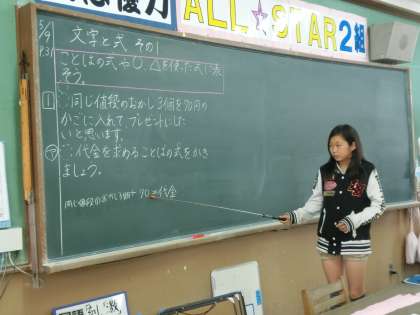 ALL☆STAR2組
5/9
P.31
文字と式 その1
ことばの式や○、△を使った式に表
そう。
1 同じ値段のおかし3個を70円の
かごに入れて、プレゼントにした
いと思います。
ア 代金を求めることばの式をかき
ましょう。
同じ値段のおかし3個+70=代金